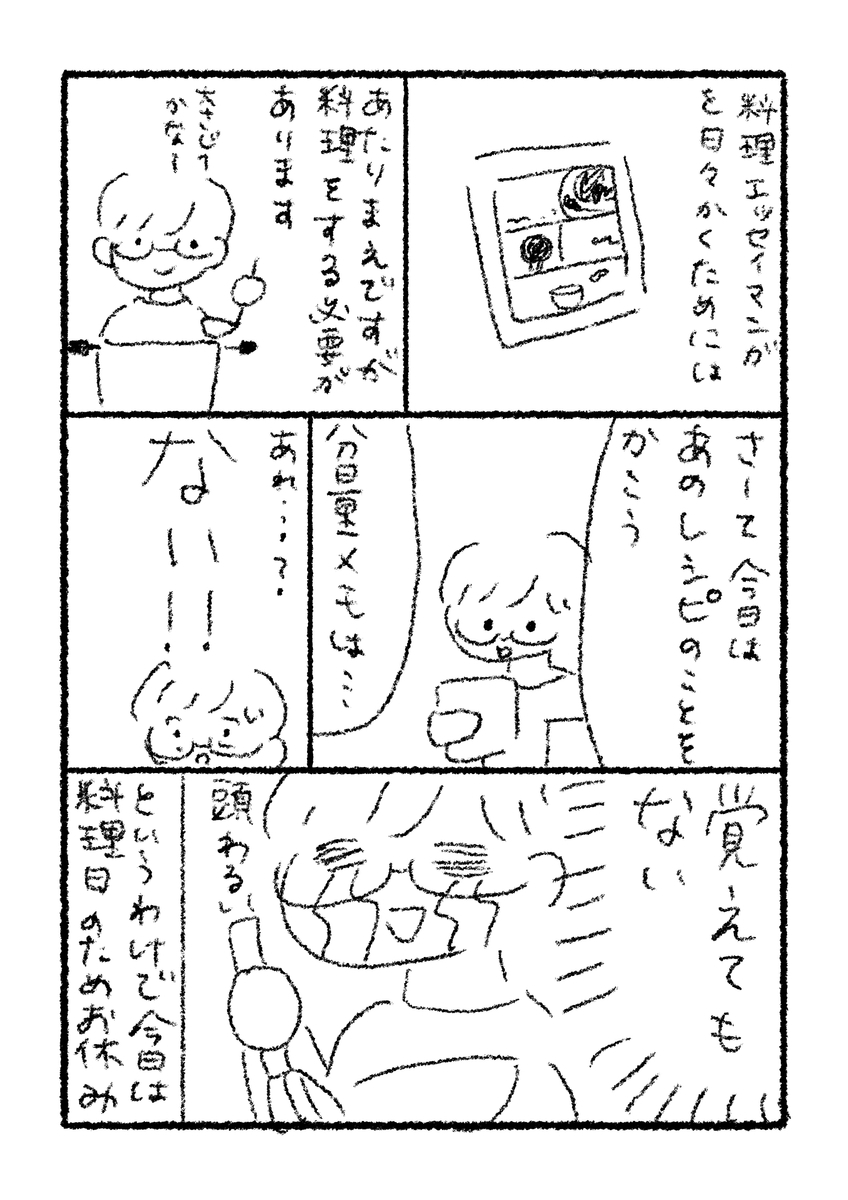 料理エッセイマンガ
を日々かくためには
あたりまえですが
料理をする必要が
あります
大さじ1
かな〜
さーて今日は
あのレシピのことを
かこう
分量メモは…
あれ…?
ない!!
覚えても
ない
頭わるい
というわけで今日は
料理日のためお休み